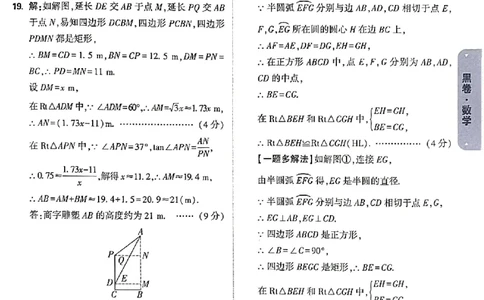 19. 解:如解图,延长 DE 交 AB 于点 M,延长 PQ 交 AB
于点 N,易知四边形 DCBM,四边形 PCBN,四边形
PDMN 都是矩形,
∴ BM=CD=1.5 m,BN=CP=12.5 m,DM=PN=
BC,∴ PD=MN=11 m.
设 DM=x m,
在 Rt△ADM 中,∵ ∠ADM=60°,∴ AM=√3x≈1.73x m,
∴ AN=(1.73x-11)m. …………………… (4 分)
在 Rt△APN 中,∵ ∠APN=37°,tan∠APN=AN/PN,
∴ 0.75≈(1.73x-11)/x,解得 x≈11.2,∴ AM≈19.4 m,
∴ AB=AM+BM≈19.4+1.5=20.9≈21(m).
答:商字雕塑 AB 的高度约为 21 m. …… (9 分)
A
P
Q
N
D
E
M
C
B
∵ 半圆弧 EFG 分别与边 AB,AD,CD 相切于点 E,
F,G,EFG 所在圆的圆心 H 在边 BC 上,
∴ AF=AE,DF=DG,EH=GH,
∴ 在正方形 ABCD 中,点 E,F,G 分别为 AB,AD,
CD 的中点,
∴ BE=CG.
在 Rt△BEH 和 Rt△CGH 中,{EH=GH,
BE=CG,
∴ Rt△BEH≌Rt△CGH(HL). …………… (4 分)
【一题多解法】如解图①,连接 EG,
由半圆弧 EFG 得,EG 是半圆的直径.
∵ 半圆弧 EFG 分别与边 AB,CD 相切于点 E,G,
∴ EG⊥AB,EG⊥CD.
∵ 四边形 ABCD 是正方形,
∴ ∠B=∠C=90°,
∴ 四边形 BEGC 是矩形,∴ BE=CG.
在 Rt△BEH 和 Rt△CGH 中,{EH=GH,
BE=CG,
黑卷·数学